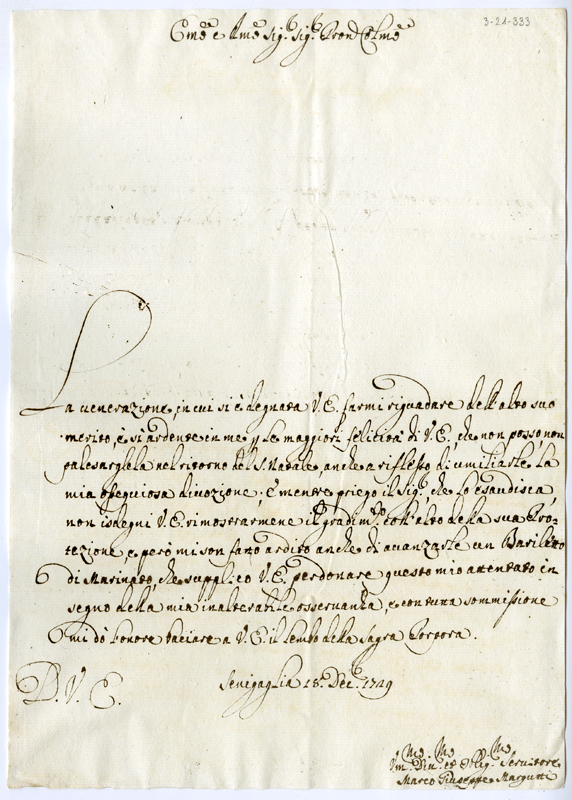 3-21-333
Em̃o e Rm̃o Sig.r Sig.r Pron̄ Col̃mo
La venerazione, in cui si è degnata V. E. farmi riguardare dell'alto suo
merito, è sì ardente in me p le maggiori felicità di V. E., che non posso non
palesargliela nel ritorno del S. Natale, anche a riflesso di umiliarle la
mia ossequiosa divozione; E mentre priego il Sig.re che lo esaudisca,
non isdegni V. E. rimostrarmene il gradim.to coll'alto della sua Pro-
tezione, e però mi son fatto ardito anche di avanzarle un Bariletto
di Marinato, che supplico V. E. perdonare questo mio attentato in
segno della mia inalterabile osservanza, e con tutta sommissione
mi dò l'onore baciare a V. E. il lembo della Sagra Porpora.
D. V. E.
Senigaglia 18. Dec.bre 1749
Vm.mo Div.mo ed Oblig.mo Servitore
Marco Giuseppe Margutti